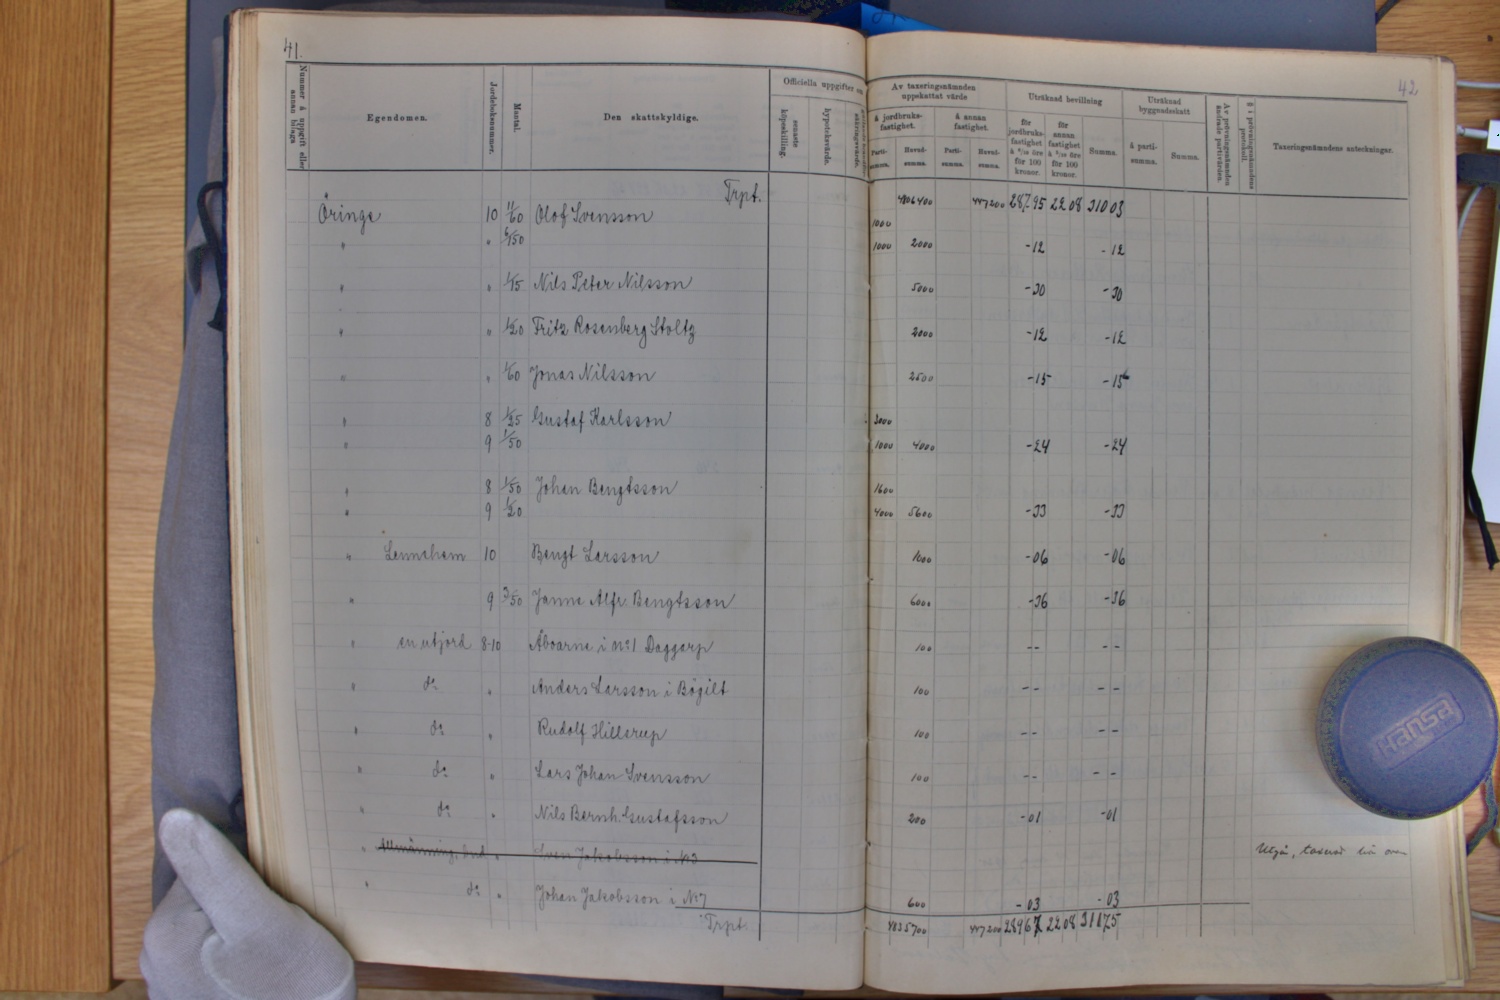 41.
42
Nummer å uppgift eller annan bilaga
Egendomen.
Jordeboksnummer.
Mantal.
Den skattskyldige.
Officiella uppgifter om
senaste köpeskilling.
hypoteksvärde.
Av taxeringsnämnden uppskattat värde
å jordbruksfastighet.
å annan fastighet.
Partisumma.
Huvudsumma.
Partisumma.
Huvudsumma.
Uträknad bevillning
för jordbruksfastighet å 6/10 öre för 100 kronor.
för annan fastighet å 5/10 öre för 100 kronor.
Summa.
Uträknad byggnadsskatt
å partisumma.
Summa.
Av prövningsnämnden ändrade partivärden.
§ i prövningsnämndens protokoll.
Taxeringsnämndens anteckningar.
Trpt. 4806400 447200 287.95 22 08 310 03
Öringe 10 Olof Svensson 1000
" " 6/150 1000 2000 -12 -12
" " 1/15 Nils Peter Nilsson 5000 -30 -30
" " 1/20 Fritz Rosenberg Stoltz 2000 -12 -12
" " 1/60 Jonas Nilsson 2500 -15 -15
" 8 1/25 Gustaf Karlsson 3000
" 9 1/50 1000 4000 -24 -24
" 8 1/50 Johan Bengtsson 1600
" 9 1/20 4000 5600 -33 -33
" Lennehem 10 Bengt Larsson 1000 -06 -06
" 9 3/50 Janne Alfr. Bengtsson 6000 -36 -36
" en utjord 8-10 Åboarne i No 1 Daggarp 100 -- --
" do " Anders Larsson i Bögilt 100 -- --
" do " Rudolf Hillerup 100 -- --
" do " Lars Johan Svensson 100 -- --
" do " Nils Bernh. Gustafsson 200 -01 -01
" Allmänning, " Sven Jakobsson i No 3 Utgår,
" do " Johan Jakobsson i No 7 600 -03 -03
Trpt. 4835700 447200 289 67 22 08 311 75
Hansa